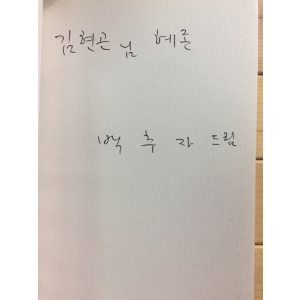 김현곤님 혜존
백 추 자 드림